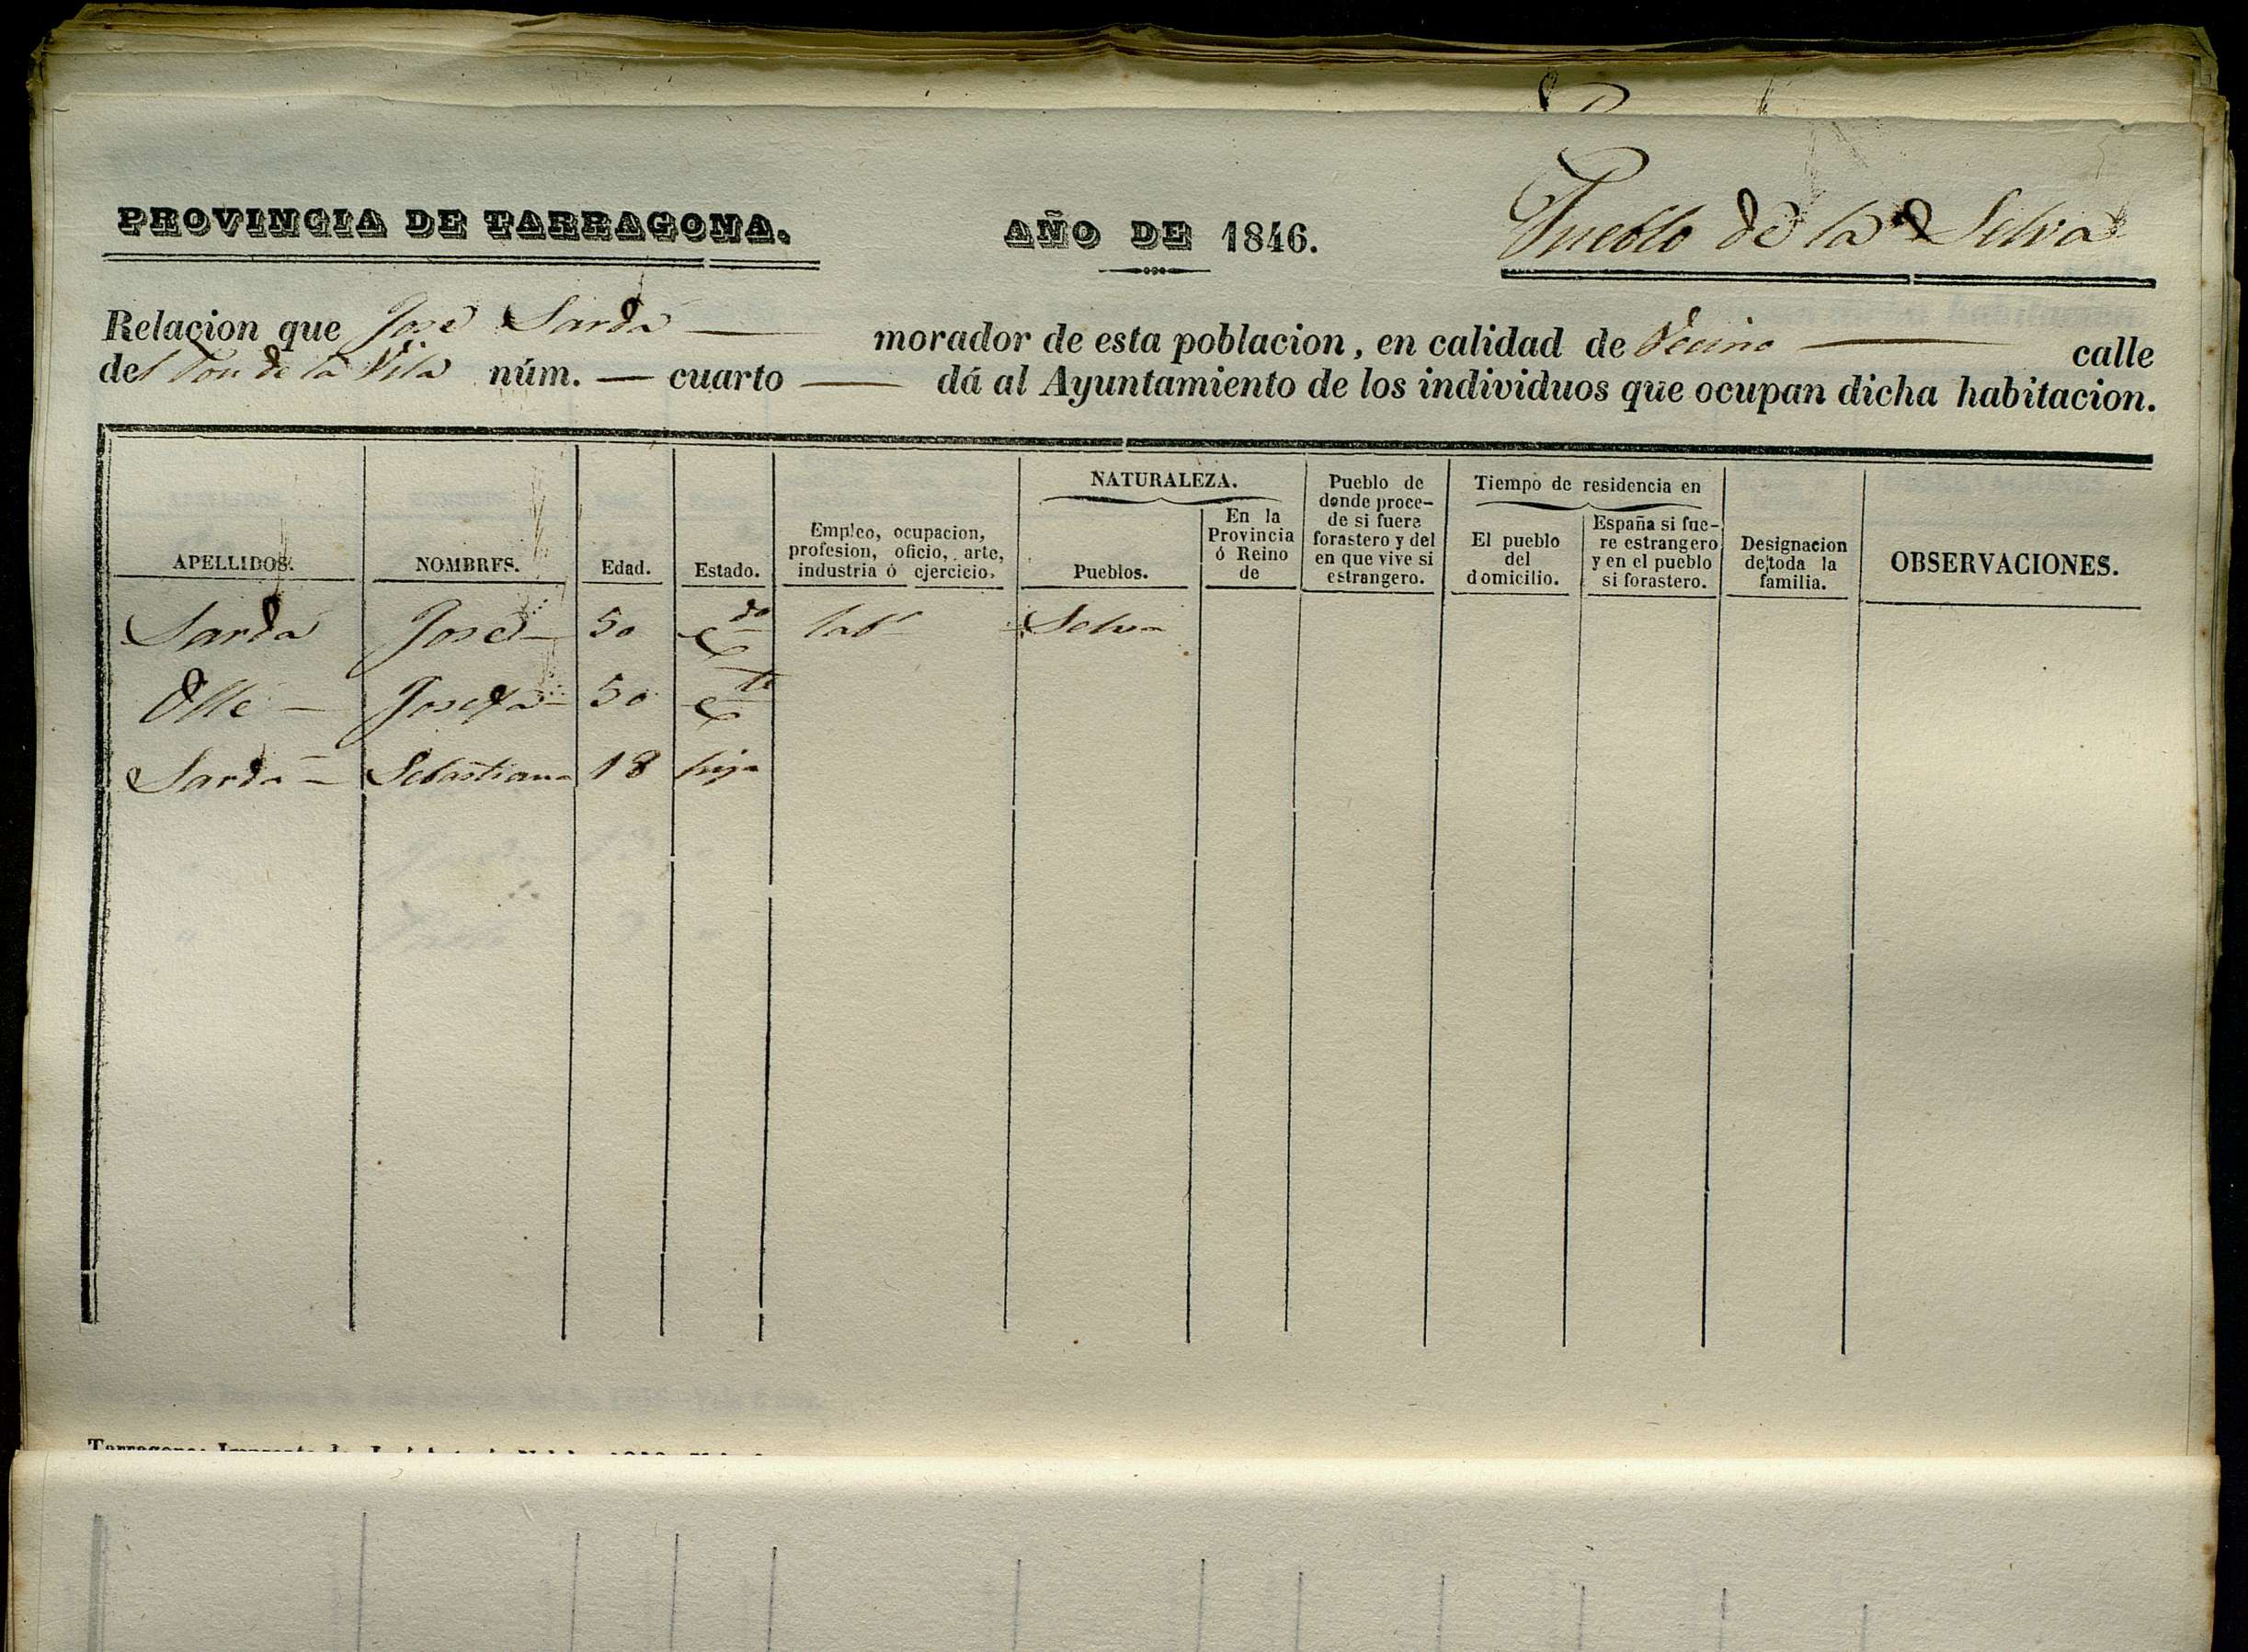 PROVINCIA DE TARRAGONA.
AÑO DE 1846.
Pueblo de la Selva
Relacion que José Sardá — morador de esta poblacion, en calidad de Vecino — calle
del Pou de la Vila núm. — cuarto — dá al Ayuntamiento de los individuos que ocupan dicha habitacion.
APELLIDOS.
NOMBRES.
Edad.
Estado.
Empleo, ocupacion,
profesion, oficio, arte,
industria ó ejercicio.
NATURALEZA.
Pueblos.
En la
Provincia
ó Reino
de
Pueblo de
donde proce-
de si fuere
forastero y del
en que vive si
estrangero.
Tiempo de residencia en
El pueblo
del
domicilio.
España si fue-
re estrangero
y en el pueblo
si forastero.
Designacion
de toda la
familia.
OBSERVACIONES.
Sardá José 50 Cdo labr Selva
Ollé — Josefa 50 Cda
Sardá — Sebastiana 18 hija